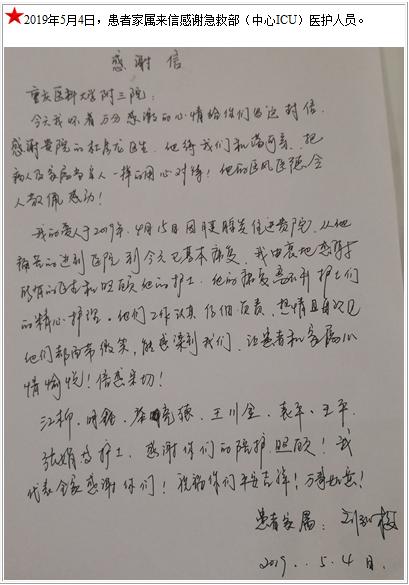 2019年5月4日，患者家属来信感谢急救部（中心ICU）医护人员。
感谢信
重庆医科大学附三院：
今天我怀着万分感激的心情给你们写这封信，
感谢贵院的杜虎龙医生。他待我们和蔼可亲、把
病人及家属当亲人一样的用心对待！他的医风医德令
人敬佩感动！
我的爱人于2019年.4月15日因胰腺炎住进贵院，从他
痛苦的进到医院到今天已基本康复，我由衷地感谢
所有的医生和照顾他的护士，他的康复离不开护士们
的精心护理。他们工作认真仔细负责，热情且每次见
他们都面带微笑，能感染到我们，让患者和家属心
情愉悦！倍感亲切！
江柳、明鑫、 王川金、袁平、王平、
张娟等护士，感谢你们的陪护照顾！我
代表全家感谢你们！祝福你们平安吉祥！万事如意！
患者家属：刘
2019..5.4日.